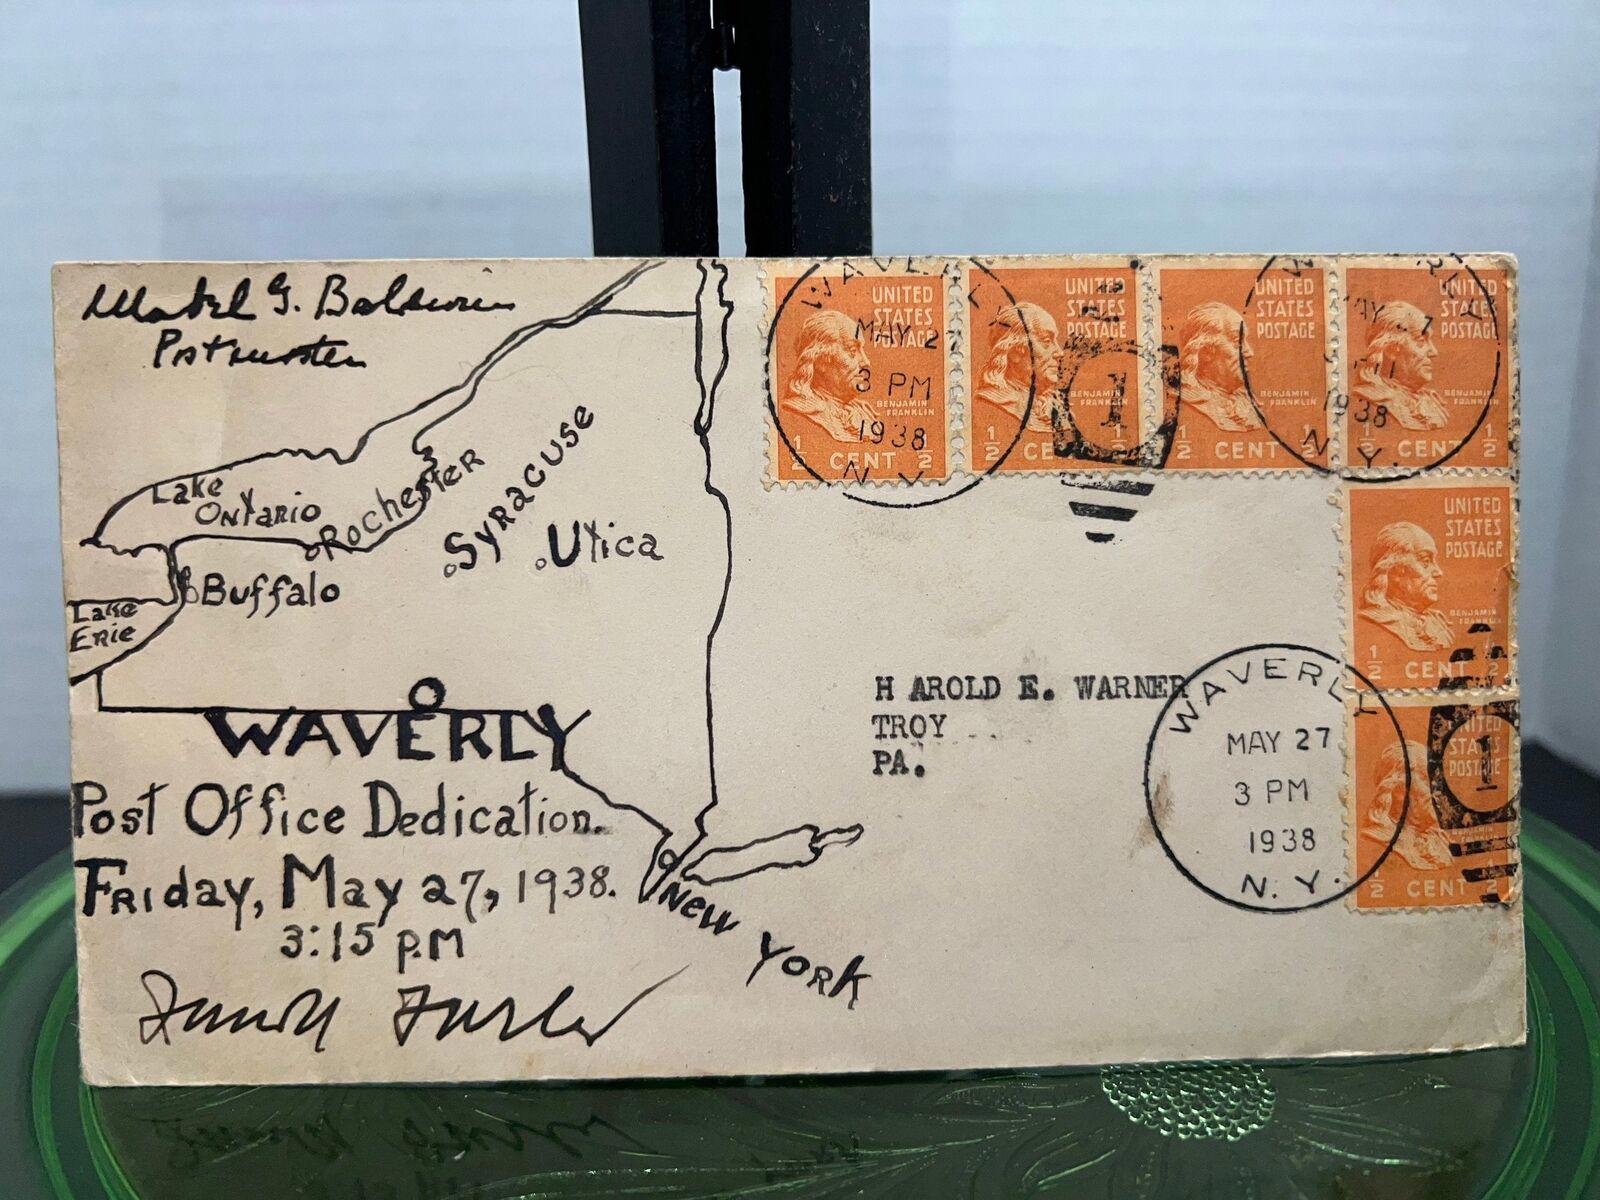 Mabel G. Baldwin
Postmaster
Lake
Ontario
Rochester
Syracuse
Utica
Buffalo
Lake
Erie
WAVERLY
Post Office Dedication.
Friday, May 27, 1938.
3:15 P.M
New York
WAVERLY
MAY 27
3 PM
1938
N. Y.
UNITED
STATES
POSTAGE
BENJAMIN
FRANKLIN
1/2 CENT 1/2
UNITED
STATES
POSTAGE
BENJAMIN
FRANKLIN
1/2 CENT
1
UNITED
STATES
POSTAGE
BENJAMIN
FRANKLIN
1/2 CENT 1/2
WAVERLY
MAY 27
PM
1938
N. Y.
UNITED
STATES
POSTAGE
BENJAMIN
FRANKLIN
1/2 CENT 1/2
UNITED
STATES
POSTAGE
BENJAMIN
FRANKLIN
1/2 CENT 1/2
H AROLD E. WARNER
TROY
PA.
WAVERLY
MAY 27
3 PM
1938
N. Y.
UNITED
STATES
POSTAGE
BENJAMIN
FRANKLIN
1/2 CENT 1/2
1